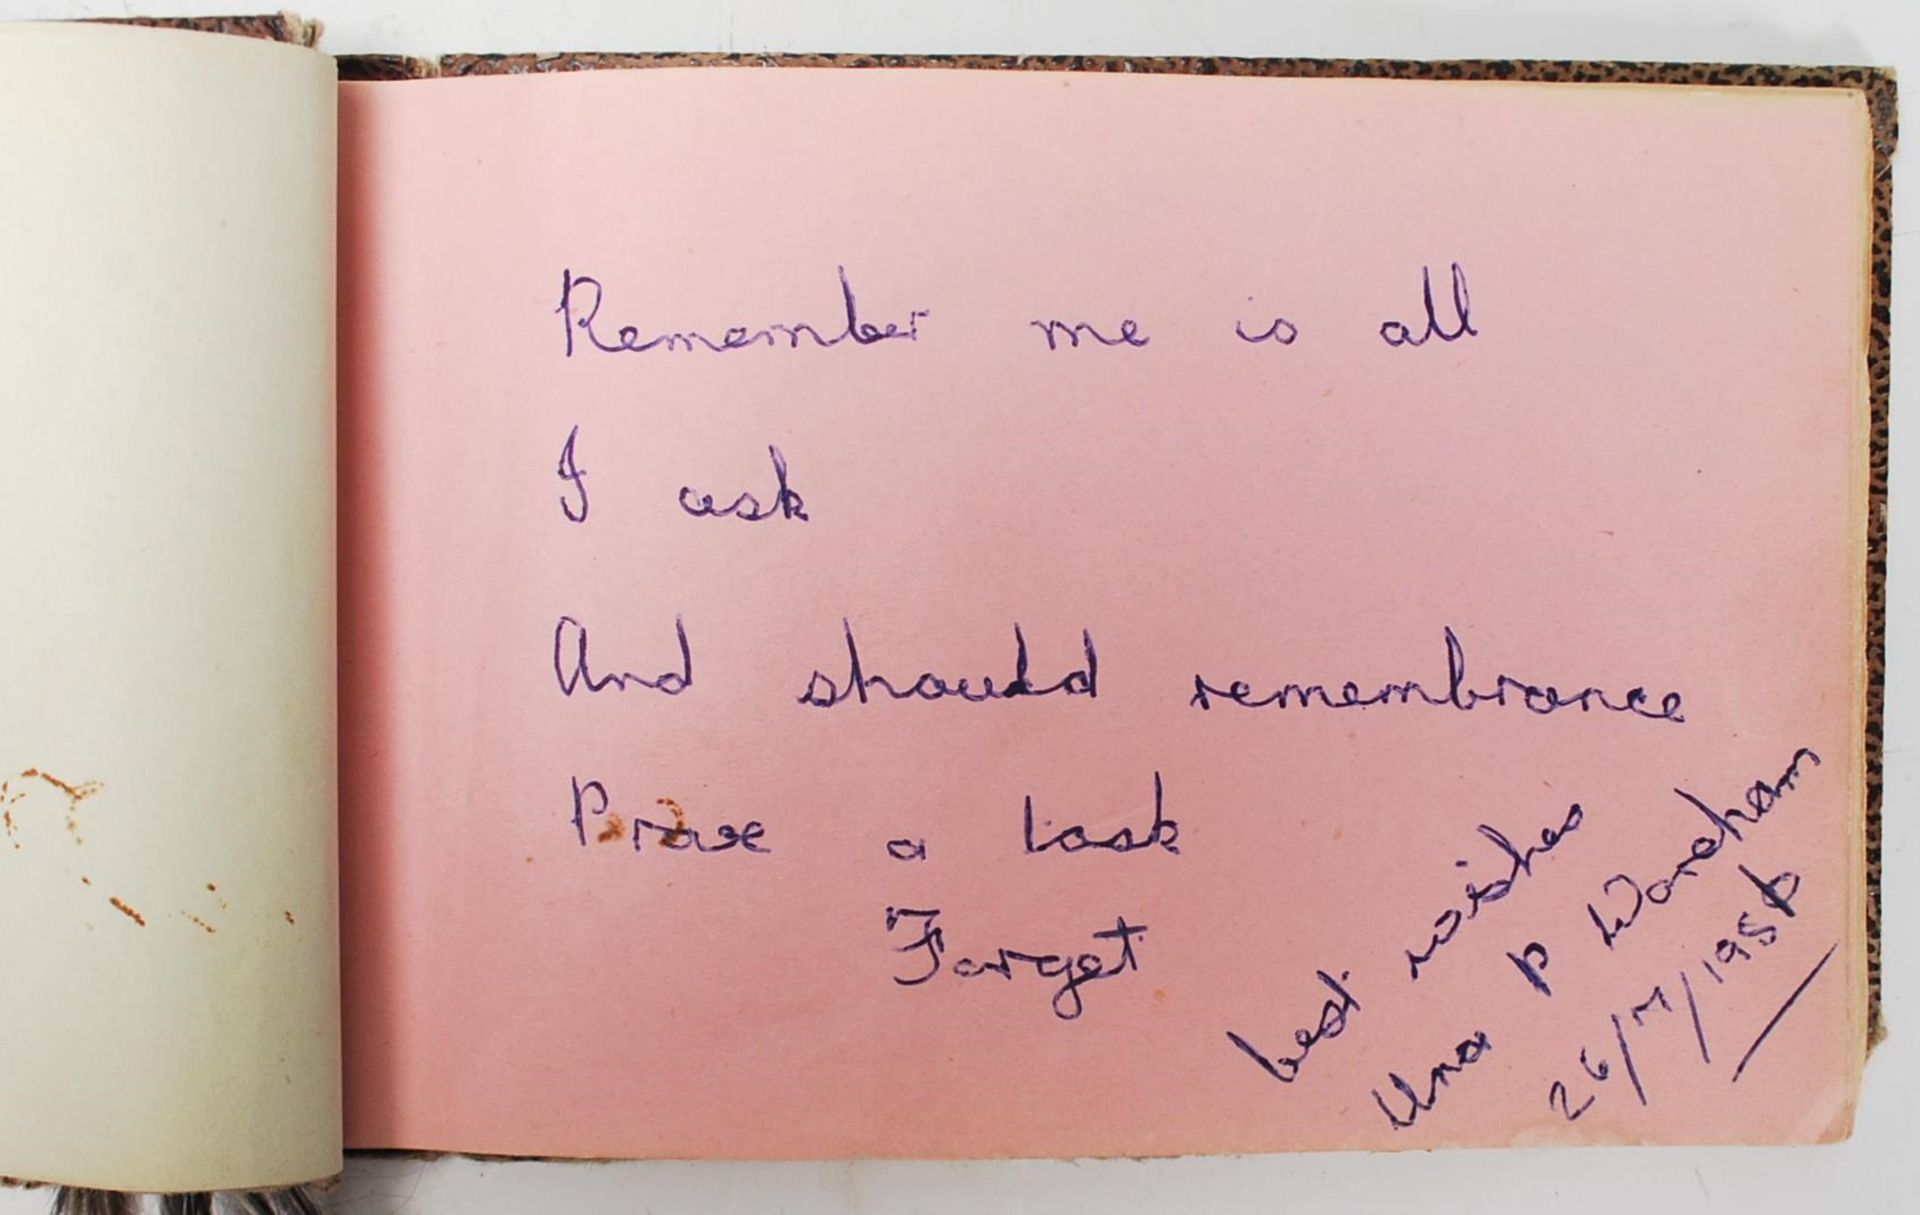 Remember me is all
I ask
And should remembrance
Prove a task
Forget
best wishes
Una P Wareham
26/7/1956